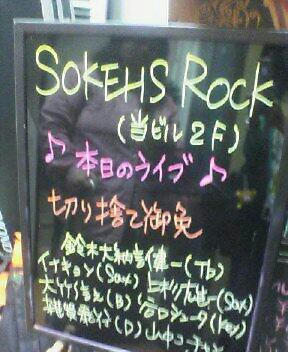 SOKEHS ROCK
(当ビル2F)
♪本日のライブ♪
切り捨て御免
鈴木大納言健一(Tb)
イナキョン(Sax) 上杉雄一(Sax)
(B) 谷口シュータ(Key)
(D) 山中コーチャン